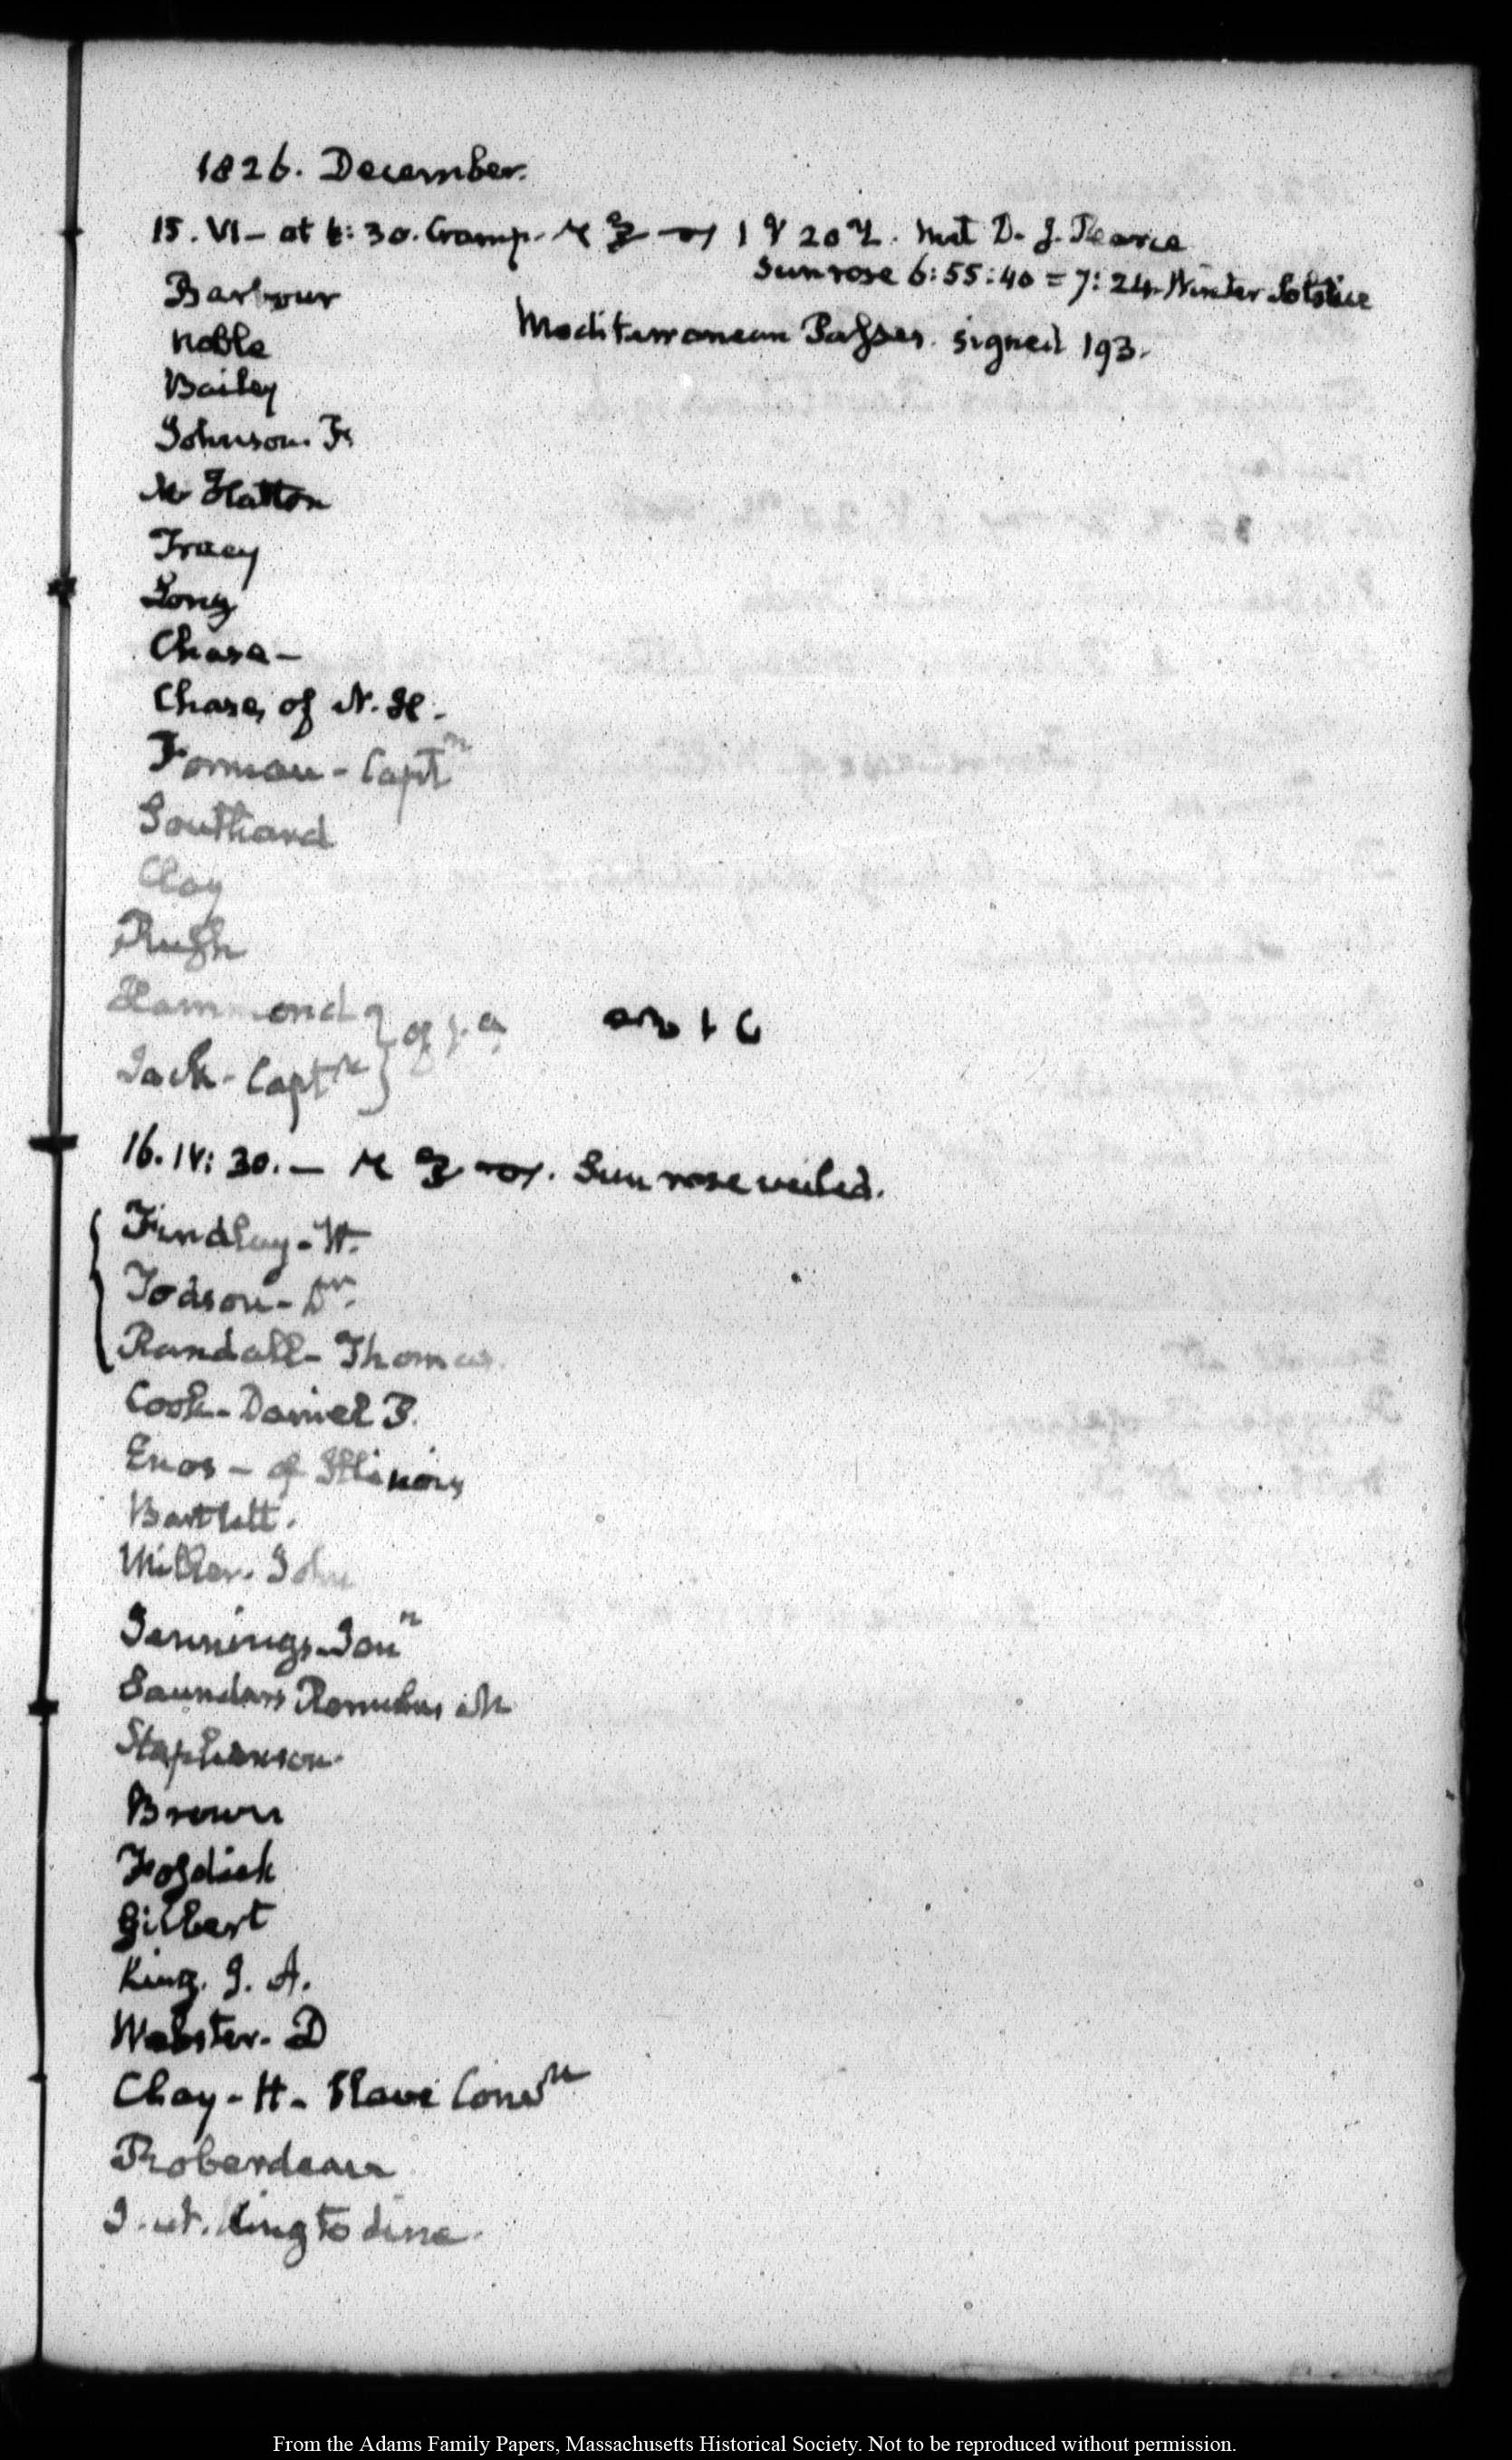 1826. December.
15. VI- at 4:30. Cramp. 1 20 Met D. J. Pearce
Sun rose 6:55:40 = 7:24. Winter Solstice
Barbour
Mediterranean Passes. signed 193.
Noble
Bailey
Johnson. Fs
Mc Hatton
Tracy
Long
Chase-
Chase, of N. H.
Forman- Captn
Southard
Clay
Rush
Hammond
Jack- Captn
16. IV: 30.- Sun rose veiled.
Findlay- W.
Todson- Dr.
Randall- Thomas.
Cook- Daniel P.
Enos- of Illinois
Bartlett.
Miller. John
Jennings- Jonn
Saunders Romulus M
Stephenson
Brown
Fosdick
Gilbert
King. J. A.
Webster. D
Clay- H- Slave Convn
Roberdeau
J. A. King to dine.
From the Adams Family Papers, Massachusetts Historical Society. Not to be reproduced without permission.